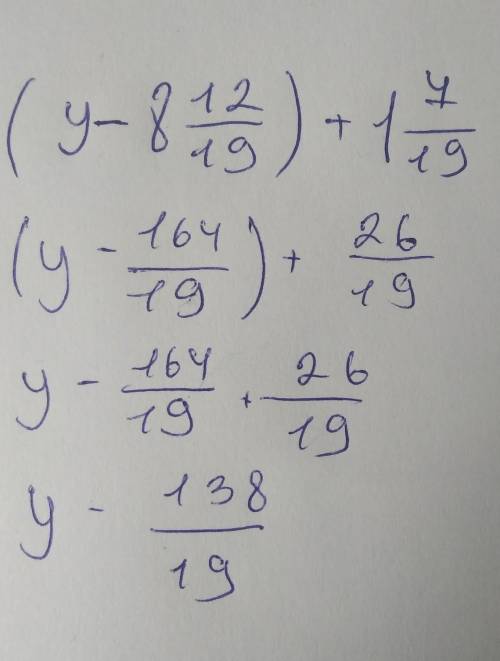 (y - 8 12/19) + 1 7/19
(y - 164/19) + 26/19
y - 164/19 + 26/19
y - 138/19